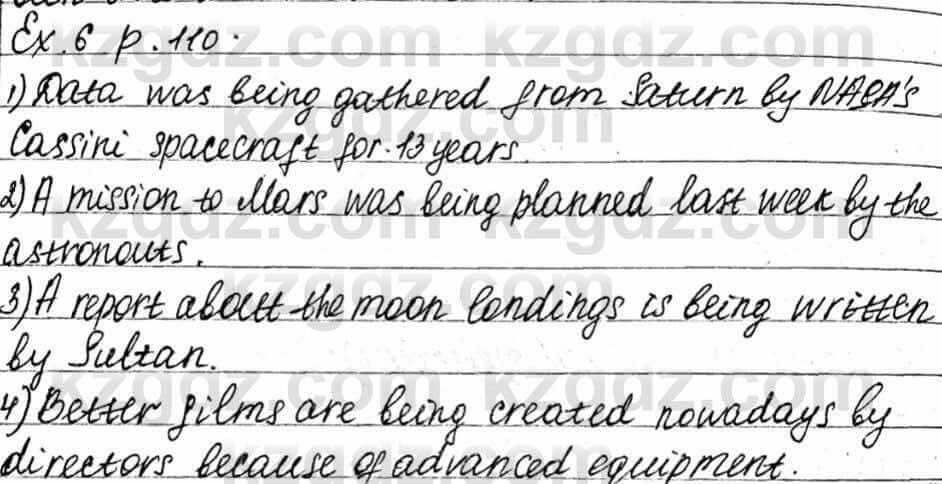 Ex. 6 p. 110.
1) Data was being gathered from Saturn by NASA's
Cassini spacecraft for 13 years.
2) A mission to Mars was being planned last week by the
astronouts.
3) A report about the moon landings is being written
by Sultan.
4) Better films are being created nowadays by
directors because of advanced equipment.
kzgdz.com